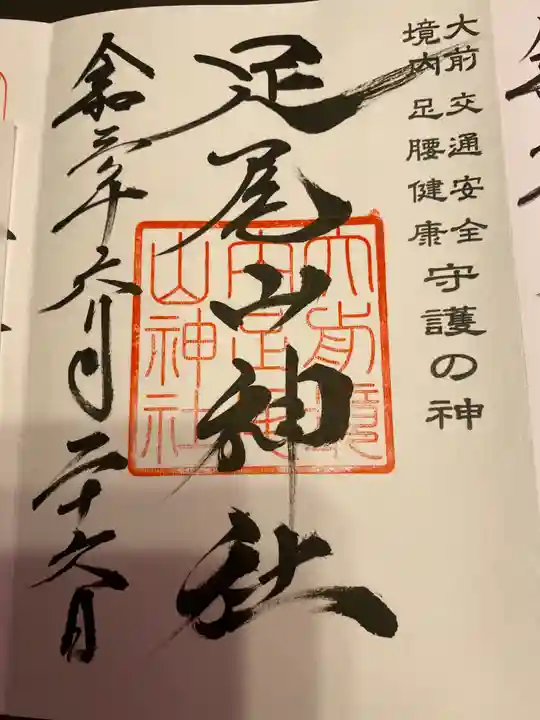 大前 交通安全
境内 足腰健康
守護の神
足尾山神社
大前境
内足尾
山神社
令和三年六月二十六日